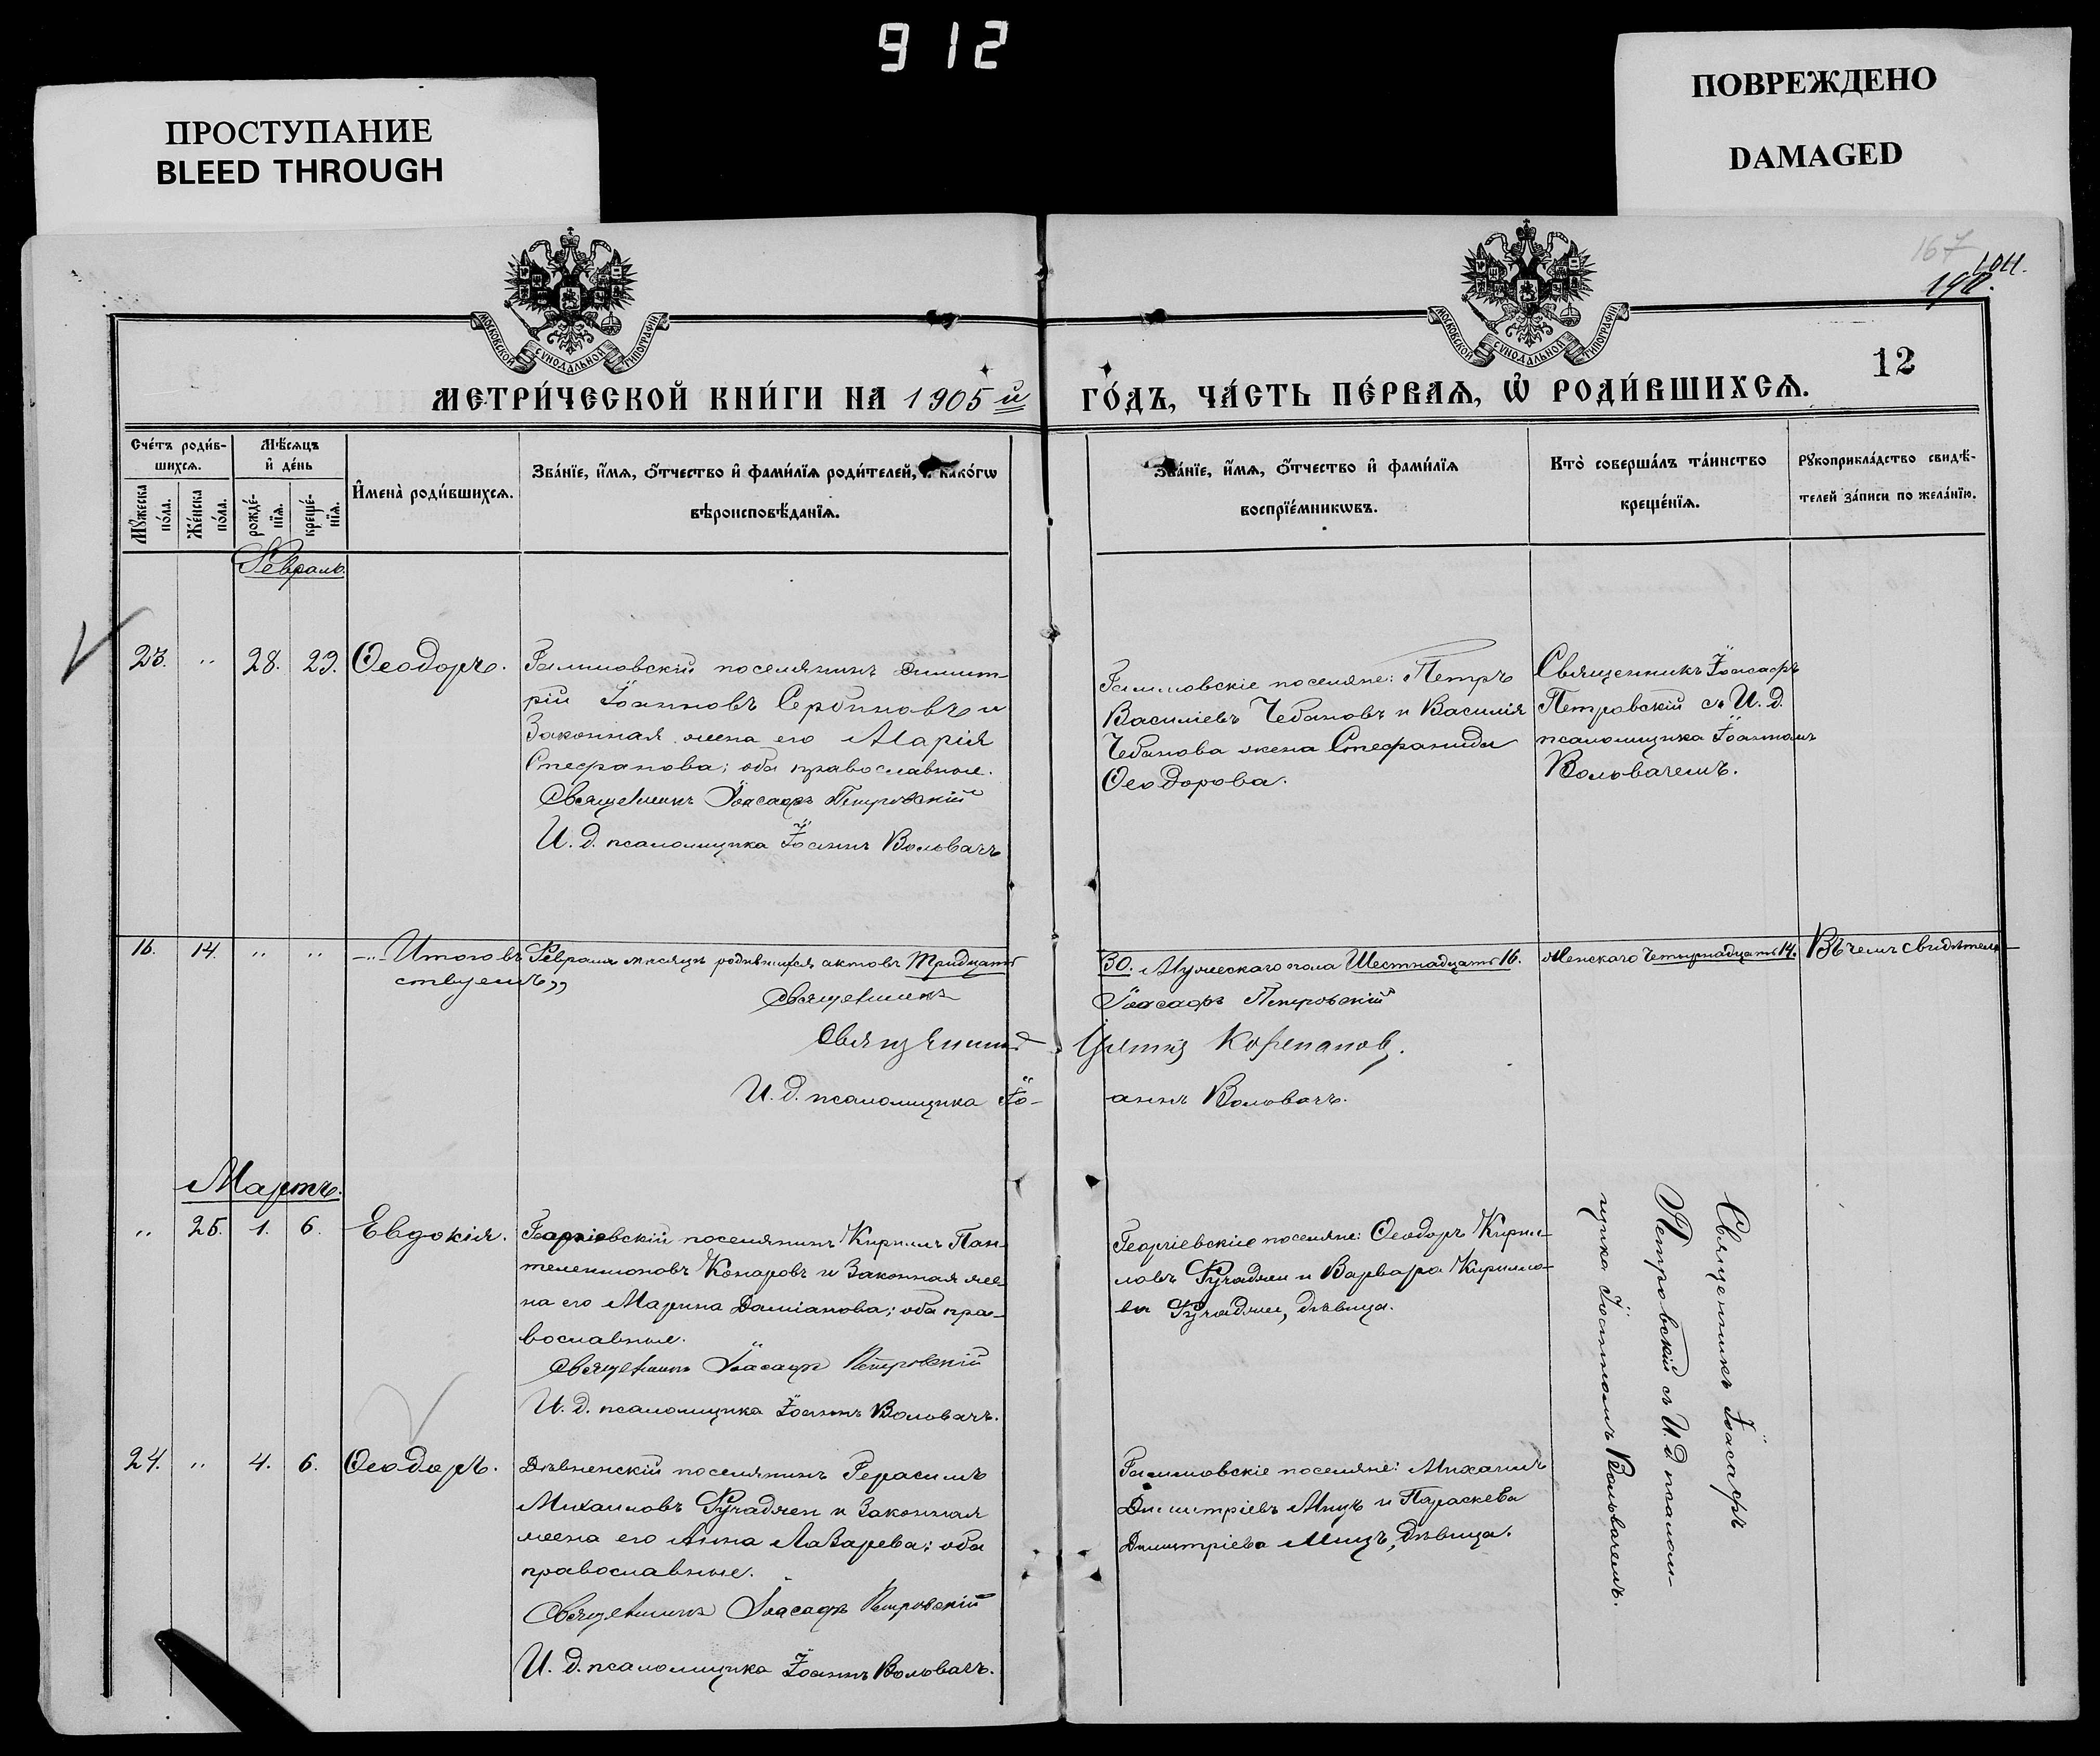 912
ПРОСТУПАНИЕ
BLEED THROUGH
ПОВРЕЖДЕНО
DAMAGED
МОСКОВСКОЙ СѴНОДАЛЬНОЙ ТИПОГРАФІИ
МОСКОВСКОЙ СѴНОДАЛЬНОЙ ТИПОГРАФІИ
167
12
МЕТРИ́ЧЕСКОЙ КНИ́ГИ НА 1905 й ГО́ДЪ, ЧА́СТЬ ПЕ́РВАѦ, Ѡ҆ РОДИ́ВШИХСѦ.
Сче́тъ роди́в-
шихсѧ.
Мꙋжеска по́ла.
Же́нска по́ла.
Мѣ́сѧцъ
и҆ де́нь
рожде́-
нїѧ.
креще́-
нїѧ.
И҆мена̀ роди́вшихсѧ.
Зва́нїе, и҆́мѧ, ѻ҆́тчество и҆ фами́лїѧ роди́телей, и҆ како́гѡ
вѣроисповѣ́данїѧ.
Зва́нїе, и҆́мѧ, ѻ҆́тчество и҆ фами́лїѧ
воспрїе́мникѡвъ.
Кто̀ соверша́лъ та́инство
креще́нїѧ.
Рꙋкоприкла́дство свидѣ́-
телей за́писи по жела́нїю.
Февраль.
23. " 28. 29. Ѳеодоръ.
поселянинъ Димит-
рій Іоанновъ Сербиновъ и
законная жена его Марія
Стефанова; оба православные.
Священникъ Іоасафъ Петровскій
И. д. псаломщика Іоаннъ Воловачъ
поселяне: Петръ
Василіевъ Чебановъ и Василія
Чебанова жена Стефанида
Ѳеодорова.
Священникъ Іоасафъ
Петровскій съ И. д.
псаломщика Іоанномъ
Воловачемъ.
16. 14. " " Итого въ Февралѣ мѣсяцѣ родившихся актовъ тридцать 30. Мужескаго пола Шестнадцать 16. Женскаго Четырнадцать 14. Въ чемъ свидѣтель-
ствуемъ"
Священникъ Іоасафъ Петровскій
Священникъ
И. д. псаломщика Іо-аннъ Воловачъ.
Мартъ.
" 25. 1. 6. Евдокія.
Георгіевскій поселянинъ Кириллъ Пан-
телеимоновъ Комаровъ и законная же-
на его Марина Даміанова; оба пра-
вославные.
Священникъ Іоасафъ Петровскій
И. д. псаломщика Іоаннъ Воловачъ.
Георгіевскіе поселяне: Ѳеодоръ Кирил-
ловъ и Варвара Кирилло-
ва дѣвица.
Священникъ Іоасафъ
Петровскій съ И. д. псалом-
щика Іоанномъ Воловачемъ.
24. " 4. 6. Ѳеодоръ.
поселянинъ Герасимъ
Михаиловъ и законная
жена его Анна Лазарева; оба
православные.
Священникъ Іоасафъ Петровскій
И. д. псаломщика Іоаннъ Воловачъ.
поселяне: Михаилъ
Димитріевъ Мицъ и Параскева
Димитріева Мицъ, дѣвица.